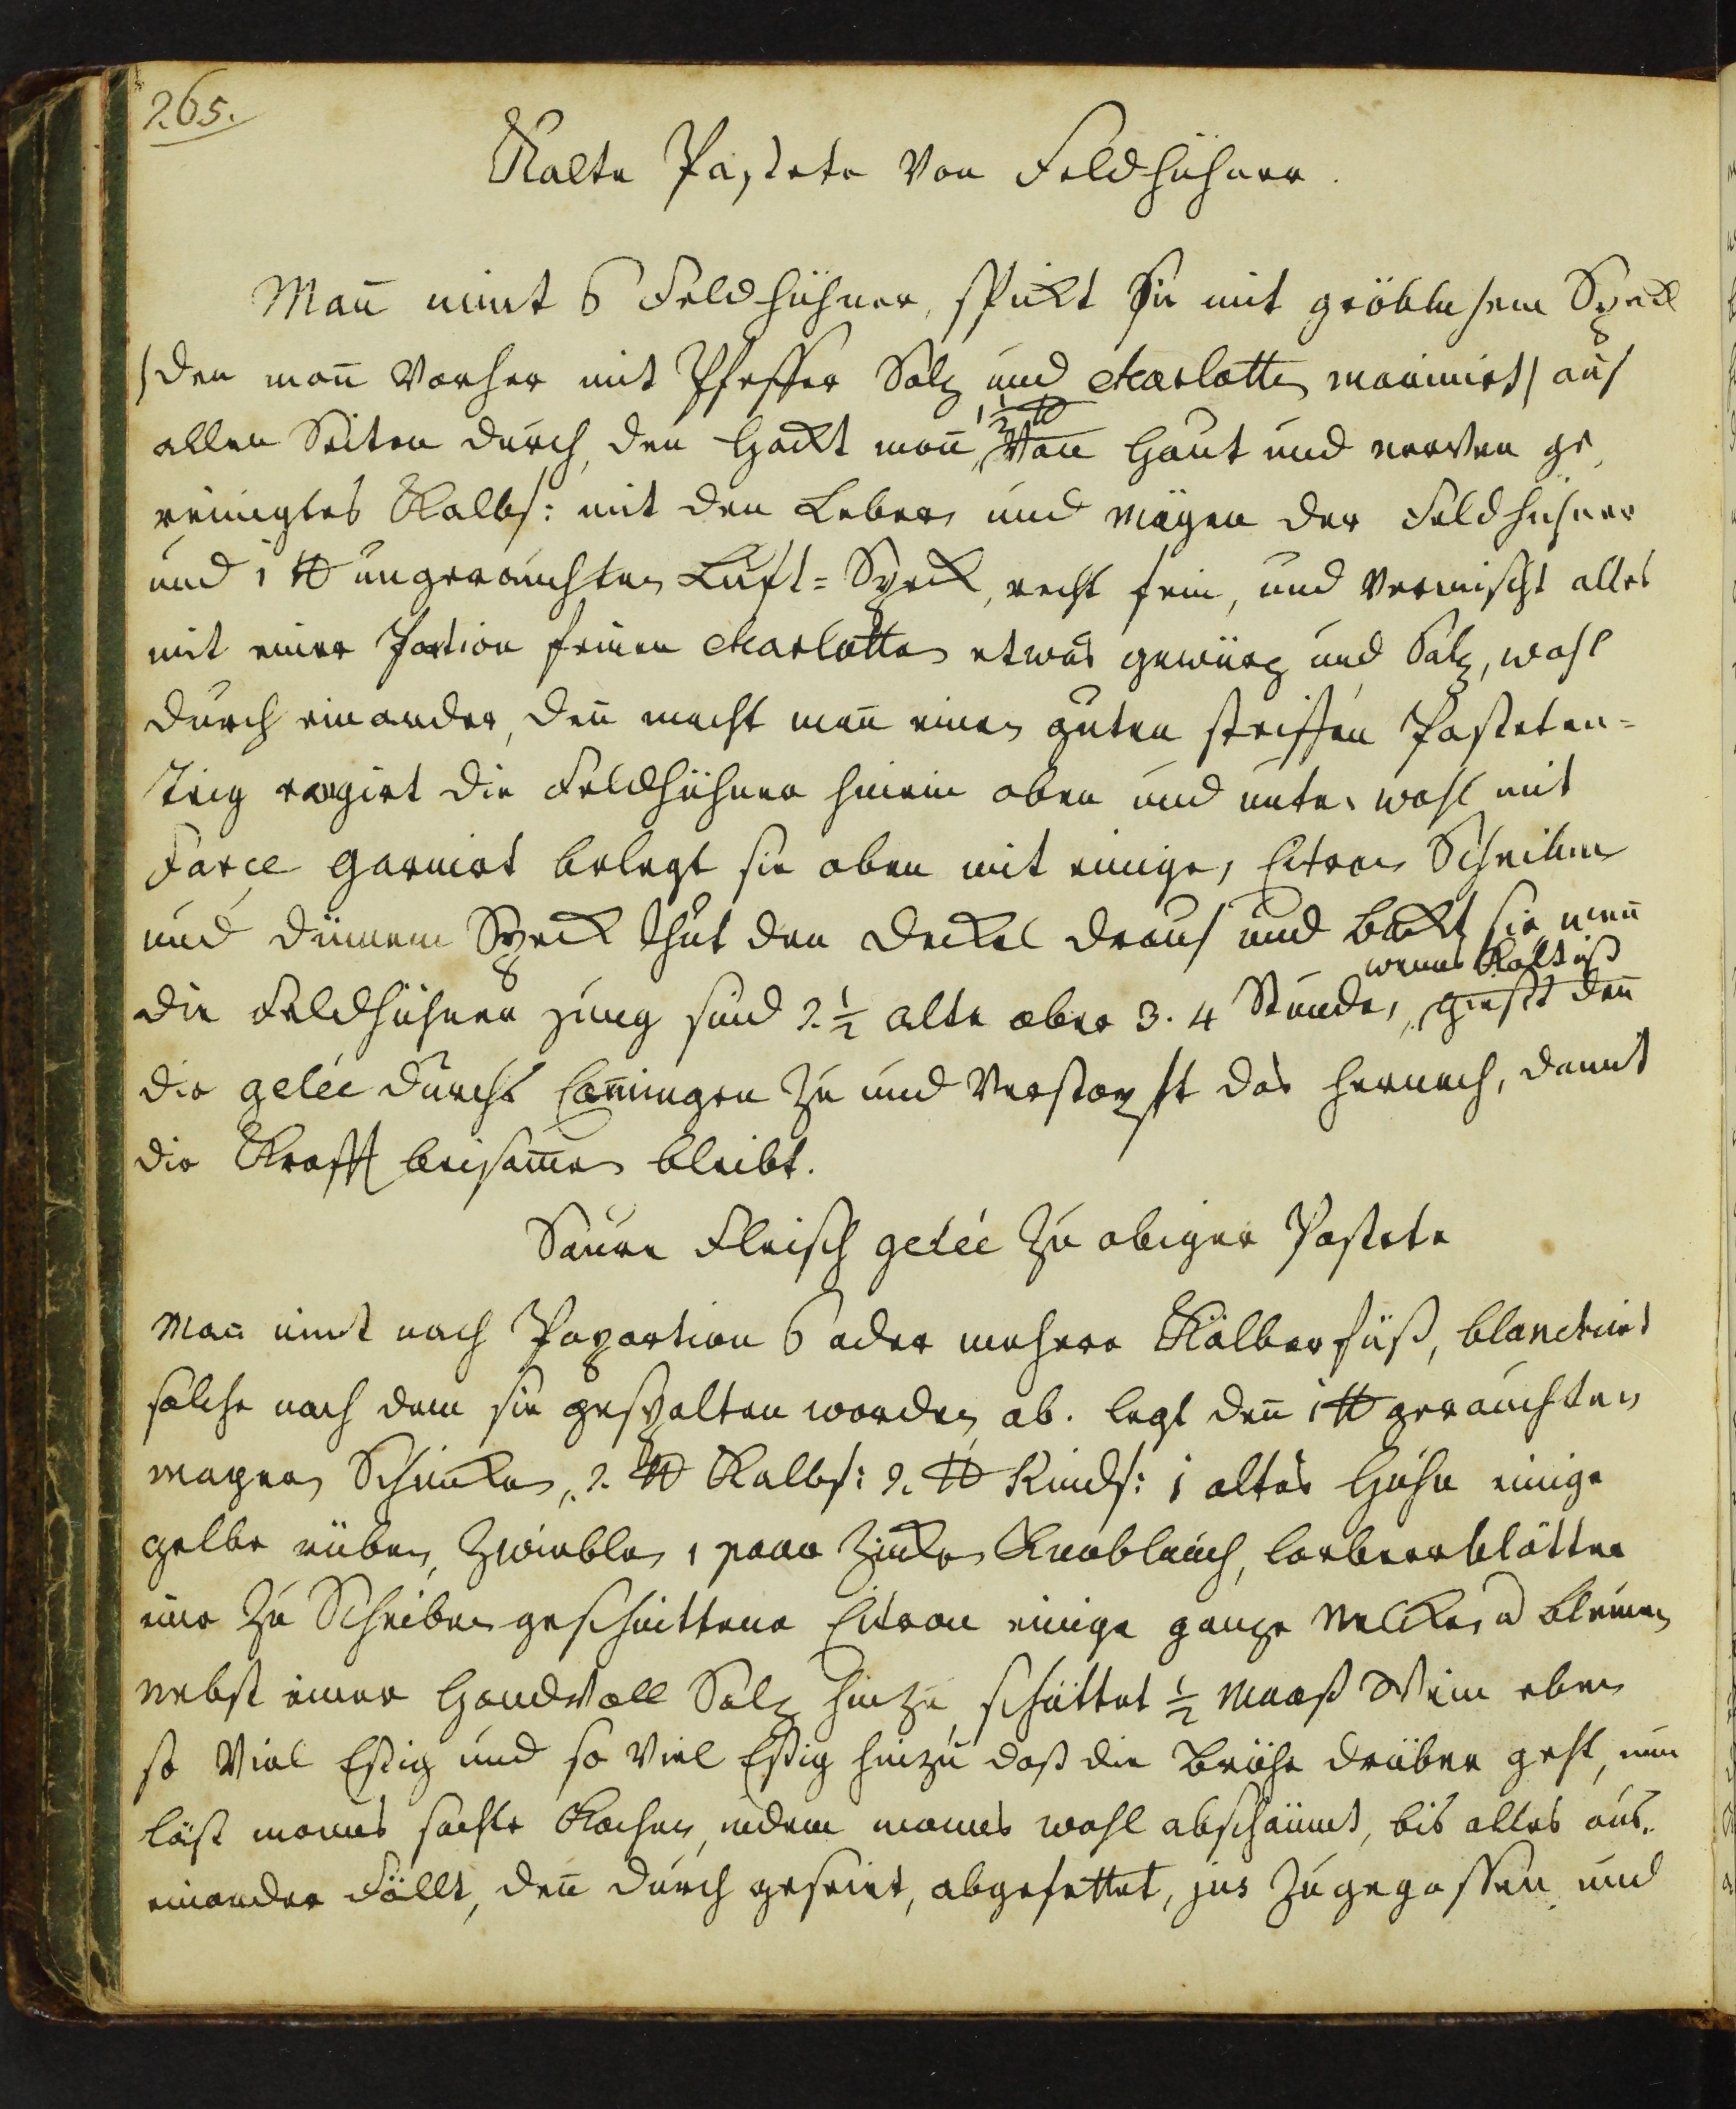 265.
Kalte Pastete von Feldhühner.
Mañ nimt 6 Feldhühner, spikt sie mit gröblichem Speck
/den mañ vorher mit Pfeffer Salz und charlotten marinirt/ auf
allen Seiten durch, den Hackt mañ 1 1/2 ℔ von Haut und nerven ge,
reinigtes Kalbf: mit den Lebern und mägen der Feldhühner
und 1 ℔ ungeräuchten Luft=Speck, recht fein, und vermischt alles
mit einer Portion feinen charlotten etwas gewürz und Salz, wohl
durch einander, deñ macht mañ einen guten steiffen Pasteten=
teig rangirt die Feldhühner hinein oben und unten wohl mit
Farce garnirt belegt sie oben mit einigen Citron Scheiben
und dünnem Speck thut den deckel drauf und backt sie weñ
die Feldhühner jung sind 2 1/2 alte aber 3. 4 Stunden, wenns Kalt ist gießt deñ
die gelée durchs Camingen zu und verstopft das hernach, damit
die Krafft beisam̃en bleibt.
Saure Fleisch gelée zu obiger Pastete
Mañ nimt nach Poportion 6 oder mehrere Kälberfüß, blanchirt
solche nach dem sie gespalten worden ab. legt deñ 1 ℔ geräuchten
magern Schinken, 2 ℔ Kalbf: 2 ℔ Rindf: 1 altes Huhn einige
gelbe rüben, Zwieblen 1 paar Zinken Knoblauch, lorbeerblätter
eine zu Scheiben geschnittene Citron einige ganze Nelken u blumen
nebst einer Handvoll Salz hinzu, schüttet 1/2 Maaß Wein eben
so viel Eßig und so viel Eßig hinzu daß die Brühe drüber geht, nun
läst manns sachte Kochen, indem manns wohl abschäumt, bis alles aus,
einander Fällt, deñ durch geseiet, abgefettet, jus zugegossen und